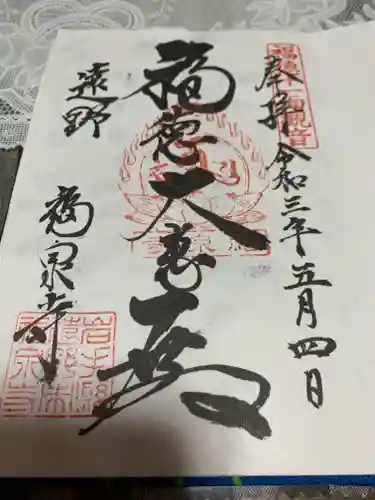 奉拝 令和三年五月四日
福徳大悲殿
遠野
福泉寺
岩手縣